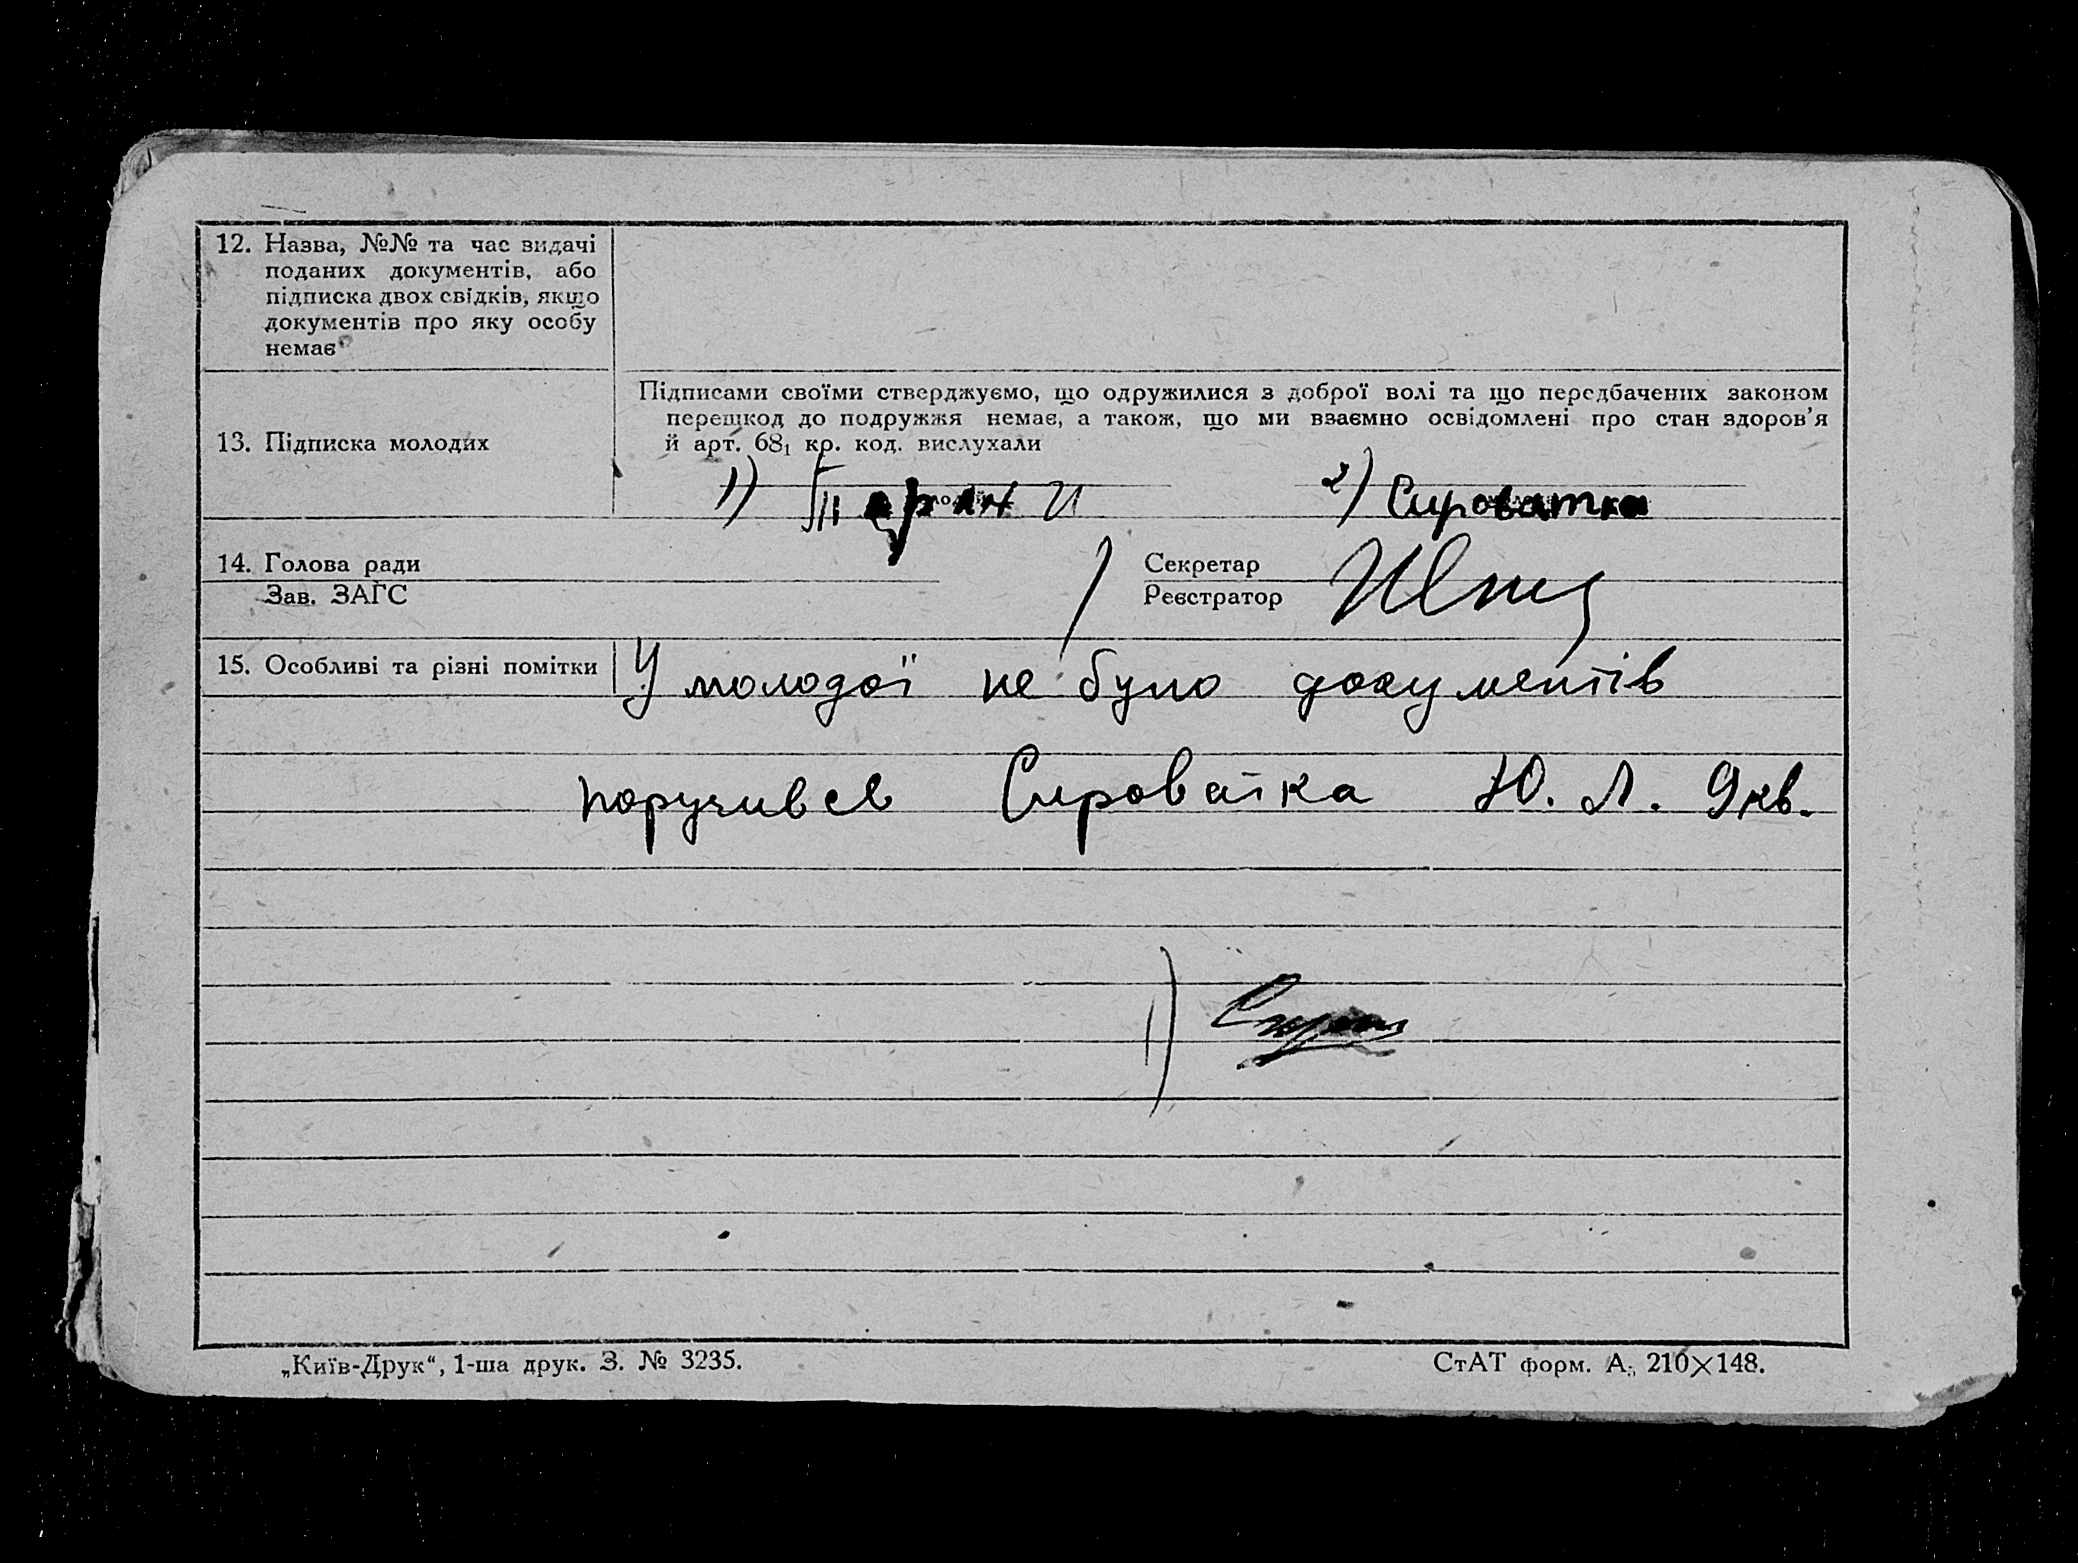 12. Назва, №№ та час видачі
поданих документів, або
підписка двох свідків, якщо
документів про яку особу
немає
13. Підписка молодих
Підписами своїми стверджуємо, що одружилися з доброї волі та що передбачених законом
перешкод до подружжя немає, а також, що ми взаємно освідомлені про стан здоров’я
й арт. 68₁ кр. код. вислухали
1)
2) Сироватка
14. Голова ради
Зав. ЗАГС
Секретар
Реєстратор
15. Особливі та різні помітки
У молодої не було документів
поручився Сироватка Ю. Л. 9 кв.
1)
„Київ-Друк“, 1-ша друк. З. № 3235.
СтАТ форм. А₅ 210×148.